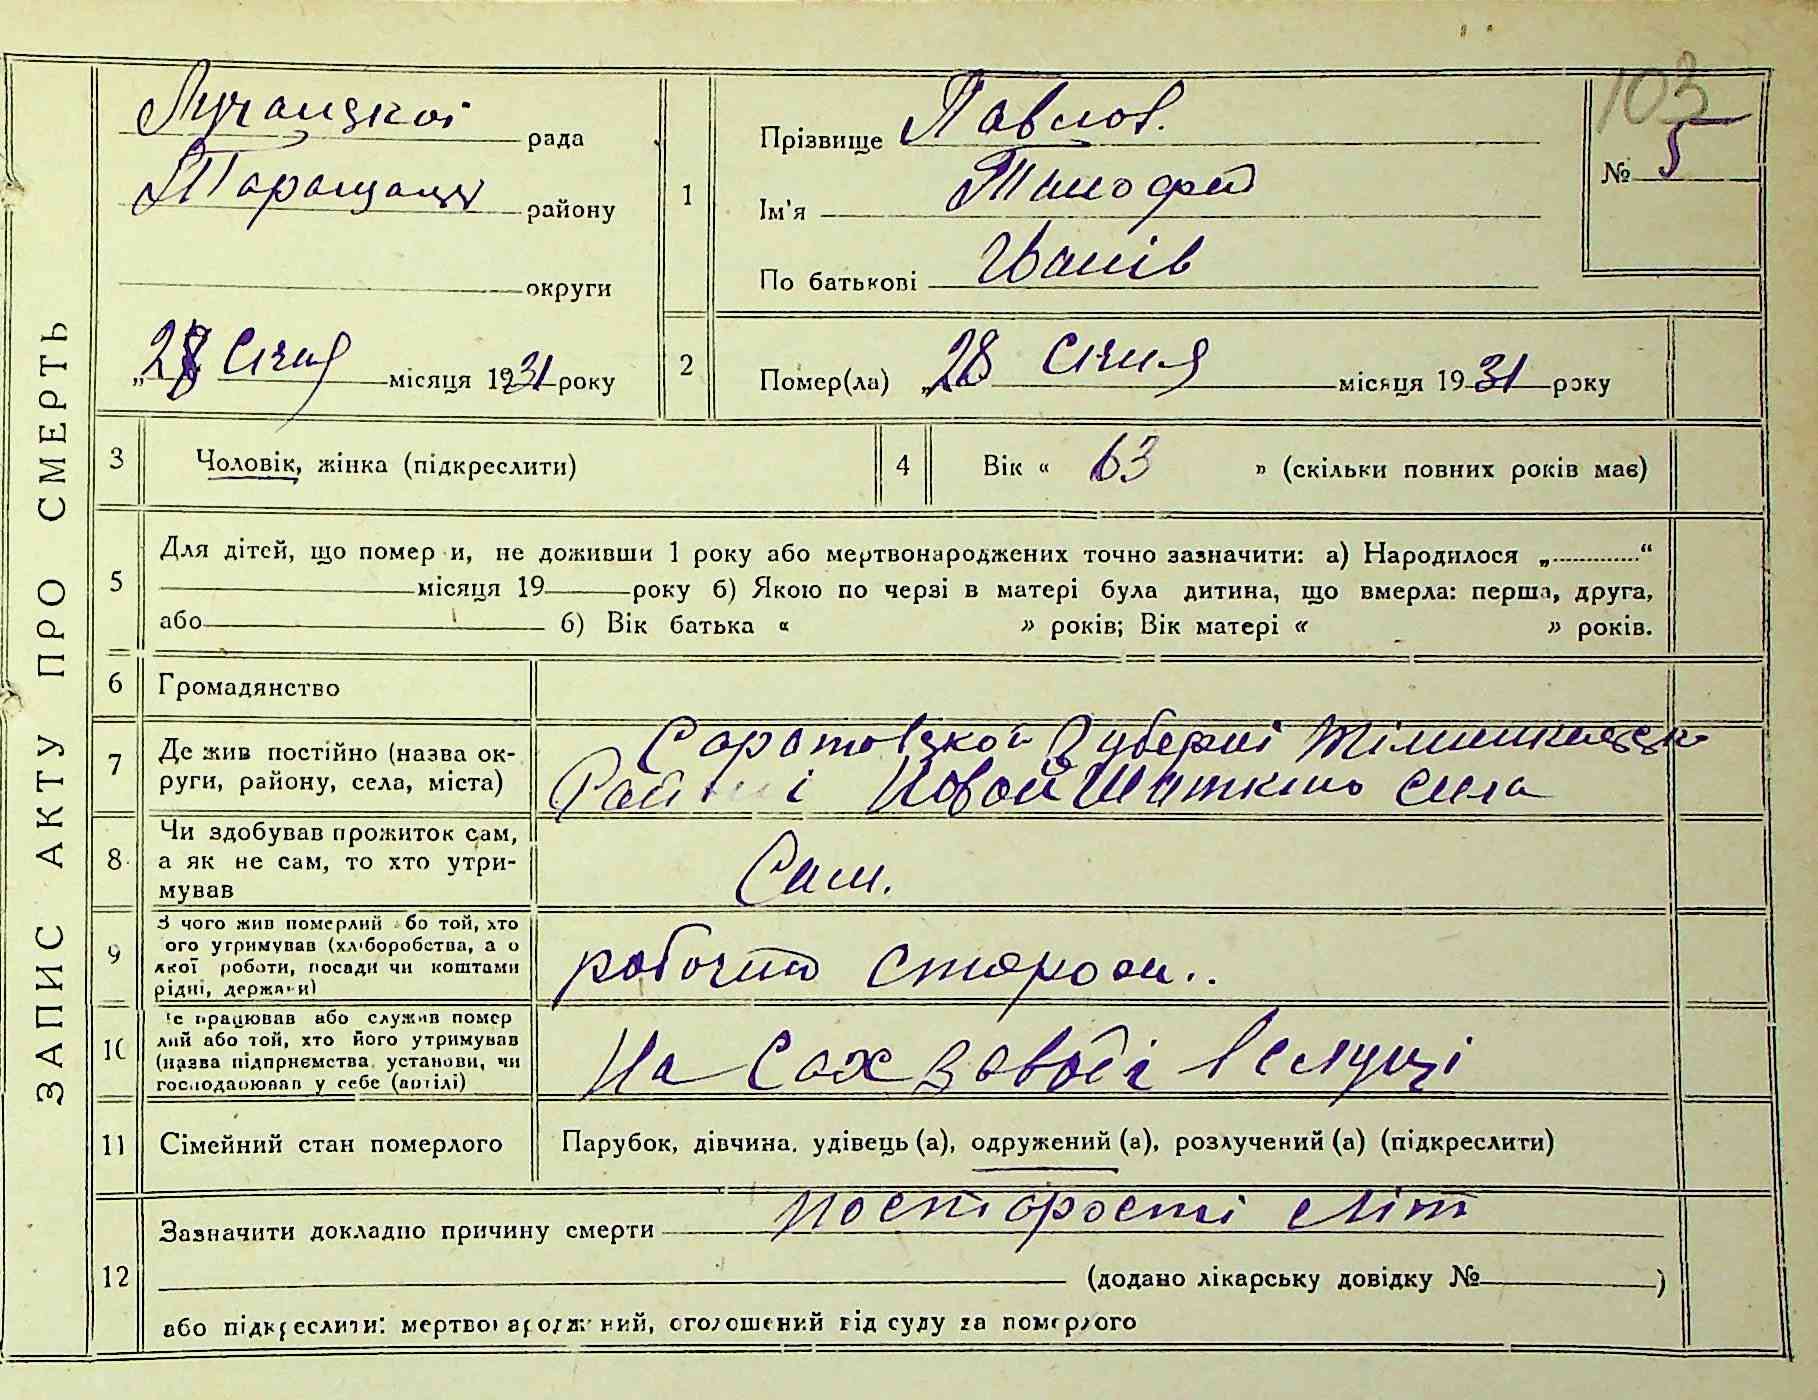 ЗАПИС АКТУ ПРО СМЕРТЬ
103
№ 5
Лучанцкої рада
Таращан району
округи
„28 січня місяця 1931 року
1
Прізвище Павлов.
Ім'я Тимофій
По батькові Іванів
2
Помер(ла) „28 січня місяця 1931 року
3 Чоловік, жінка (підкреслити)
4 Вік « 63 » (скільки повних років має)
5 Для дітей, що помер и, не доживши 1 року або мертвонароджених точно зазначити: а) Народилося „ “
місяця 19 року б) Якою по черзі в матері була дитина, що вмерла: перша, друга,
або б) Вік батька « » років; Вік матері « » років.
6 Громадянство
7 Де жив постійно (назва ок-
руги, району, села, міста)
Саратовзкой Губерні
Районі Новой Шаткино села
8 Чи здобував прожиток сам,
а як не сам, то хто утри-
мував
Сам.
9 З чого жив померлий бо той, хто
ого утримував (хліборобства, а о
якої роботи, посади чи коштами
рідні, держави)
робочий
10 е працював або служив помер
лий або той, хто його утримував
(назва підприємства, установи, чи
господарював у себе (артілі)
На Сахзаводі
11 Сімейний стан померлого
Парубок, дівчина, удівець (а), одружений (а), розлучений (а) (підкреслити)
12 Зазначити докладно причину смерти постарості літ
(додано лікарську довідку № )
або підкреслити: мертвонароджений, оголошений від суду за померлого